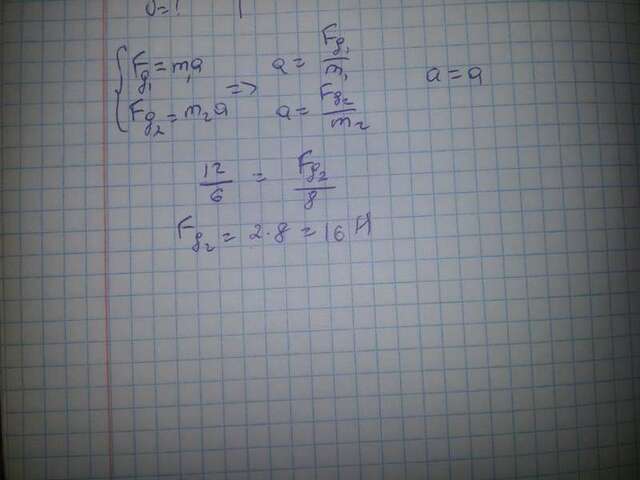 { Fg₁ = m₁a
{ Fg₂ = m₂a
=>
a = Fg₁/m₁
a = Fg₂/m₂
a = a
12/6 = Fg₂/8
Fg₂ = 2·8 = 16 Н